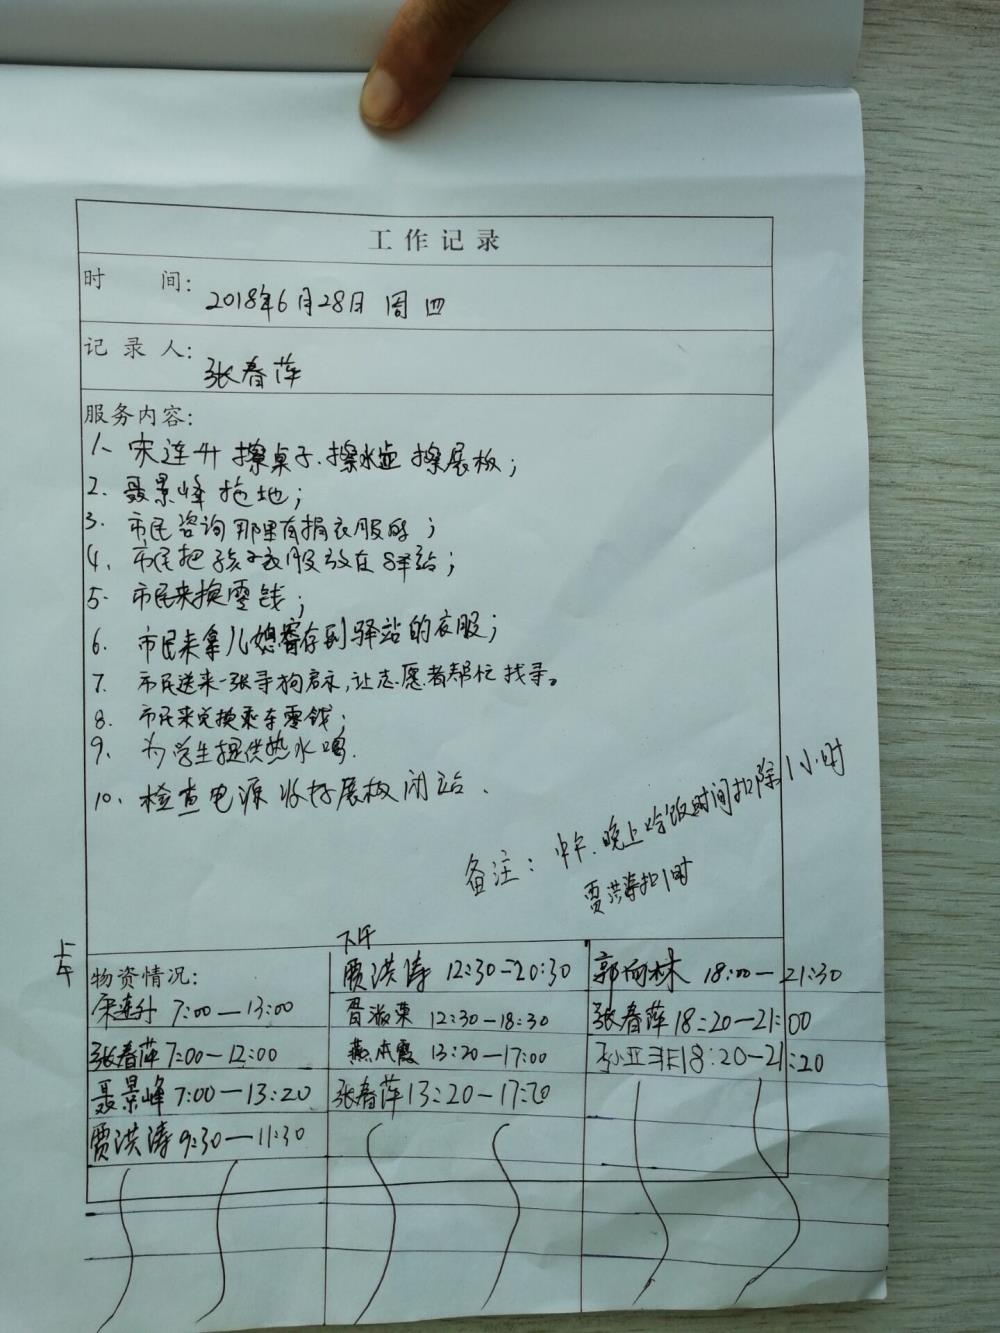 工作记录
时 间: 2018年6月28日 周四
记 录 人: 张春萍
服务内容:
1、宋连升 擦桌子、擦水壶 擦展板;
2、聂景峰 拖地;
3、市民咨询那里有捐衣服的;
4、市民把孩子衣服放在驿站;
5、市民来换零钱;
6、市民来拿儿媳寄存到驿站的衣服;
7、市民送来一张寻狗启示,让志愿者帮忙找寻。
8、市民来兑换乘车零钱;
9、为学生提供热水喝.
10、检查电源 收好展板 闭站.
备注: 中午、晚上吃饭时间扣除1小时
贾洪涛扣1时
上午
下午
物资情况:
宋连升 7:00—13:00
张春萍 7:00—12:00
聂景峰 7:00—13:20
贾洪涛 9:30—11:30
贾洪涛 12:30—20:30
晋淑荣 12:30—18:30
燕霞 13:20—17:00
张春萍 13:20—17:20
郭林 18:00—21:30
张春萍 18:20—21:00
孙亚非 18:20—21:20